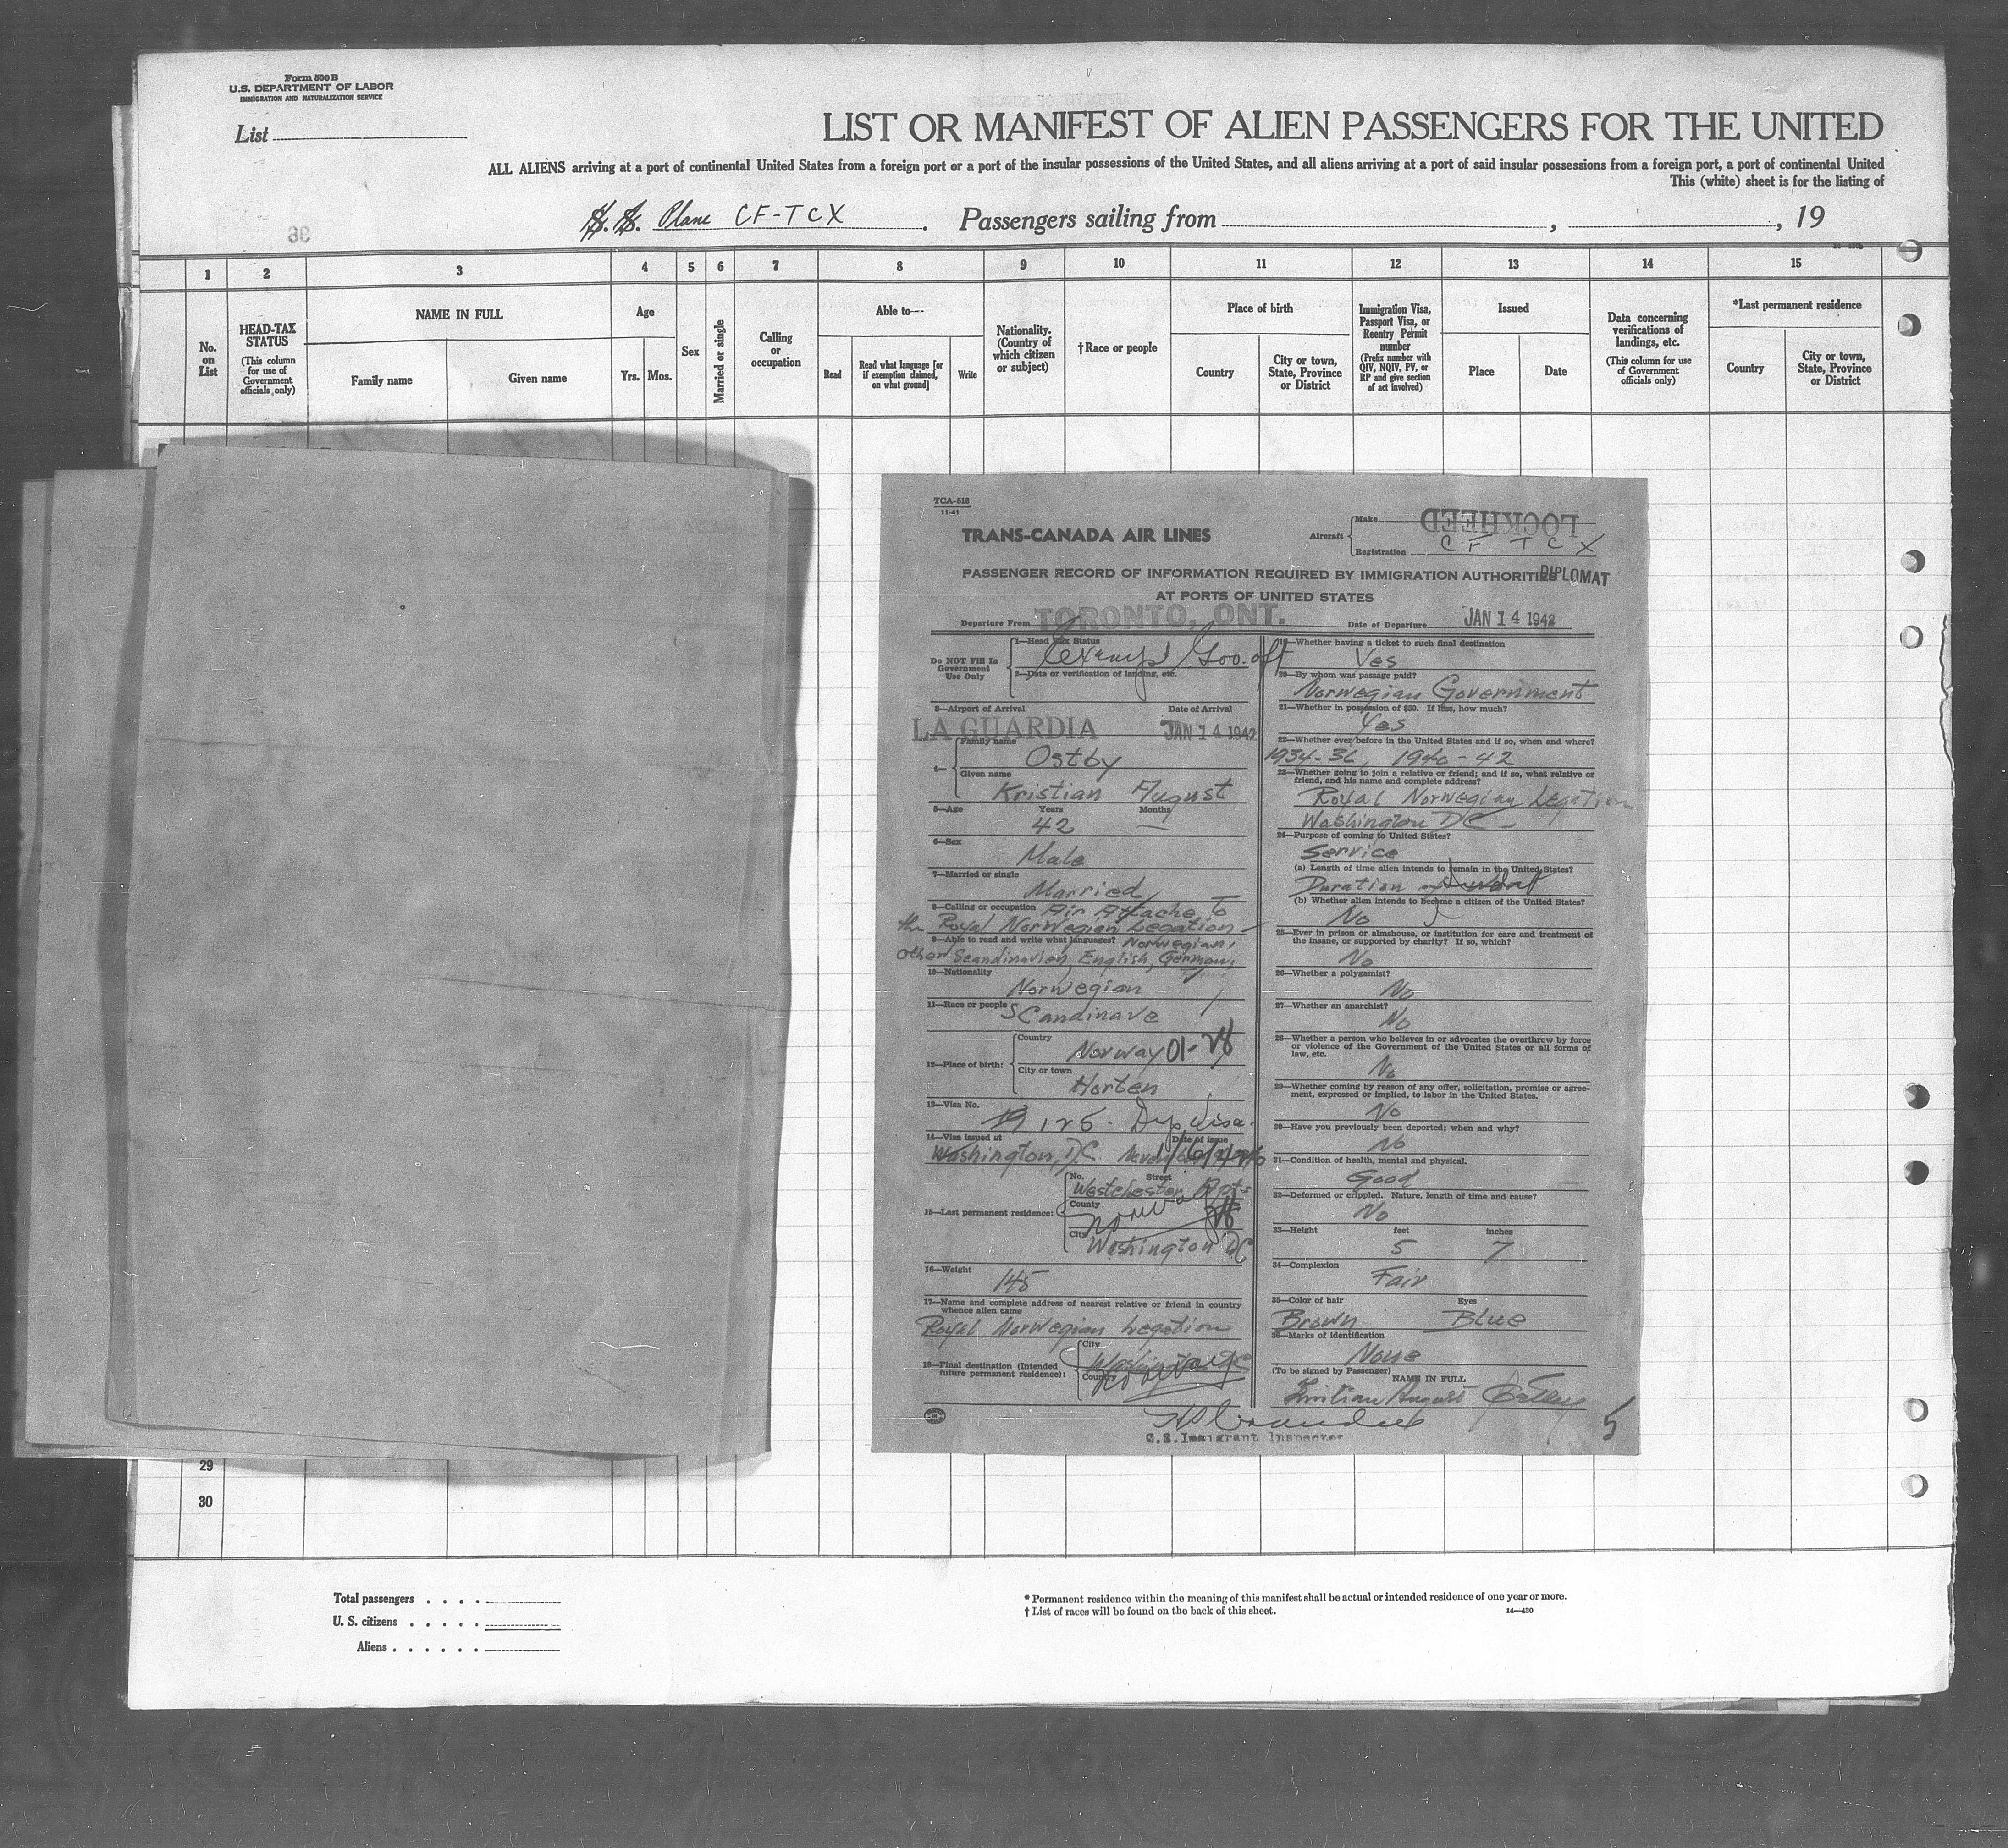 Form 500B
U.S. DEPARTMENT OF LABOR
IMMIGRATION AND NATURALIZATION SERVICE
List
LIST OR MANIFEST OF ALIEN PASSENGERS FOR THE UNITED
ALL ALIENS arriving at a port of continental United States from a foreign port or a port of the insular possessions of the United States, and all aliens arriving at a port of said insular possessions from a foreign port, a port of continental United
This (white) sheet is for the listing of
S.S. Plane CF-TCX. Passengers sailing from , , 19
1 2 3 4 5 6 7 8 9 10 11 12 13 14 15
No. on List
HEAD-TAX STATUS
(This column for use of Government officials only)
NAME IN FULL
Family name
Given name
Age
Yrs. Mos.
Sex
Married or single
Calling or occupation
Able to—
Read
Read what language [or if exemption claimed, on what ground]
Write
Nationality. (Country of which citizen or subject)
†Race or people
Place of birth
Country
City or town, State, Province or District
Immigration Visa, Passport Visa, or Reentry Permit number
(Prefix number with QIV, NQIV, PV, or RP and give section of act involved)
Issued
Place
Date
Data concerning verifications of landings, etc.
(This column for use of Government officials only)
*Last permanent residence
Country
City or town, State, Province or District
TCA-518
11-41
TRANS-CANADA AIR LINES
Aircraft
Make LOCKHEED
Registration CF TCX
PASSENGER RECORD OF INFORMATION REQUIRED BY IMMIGRATION AUTHORITIES
DIPLOMAT
AT PORTS OF UNITED STATES
Departure From TORONTO, ONT. Date of Departure JAN 14 1942
Do NOT Fill In
Government
Use Only
1—Head Tax Status
Exempt Gov. off
2—Data or verification of landing, etc.
3—Airport of Arrival Date of Arrival
LA GUARDIA JAN 14 1942
4— Family name
Ostby
Given name
Kristian August
5—Age Years Months
42 —
6—Sex
Male
7—Married or single
Married
8—Calling or occupation Air Attache to
the Royal Norwegian Legation
9—Able to read and write what languages? Norwegian,
other Scandinavian, English, German,
10—Nationality
Norwegian
11—Race or people
Scandinave
12—Place of birth:
Country
Norway 01-28
City or town
Horten
13—Visa No.
125. Dip. Visa.
14—Visa issued at Date of issue
Washington, DC
15—Last permanent residence:
No. Street
Westchester Apts
County
Norway
City
Washington DC
16—Weight
145
17—Name and complete address of nearest relative or friend in country
whence alien came
Royal Norwegian Legation
18—Final destination (Intended
future permanent residence):
City
Washington DC
Country
Norway
19—Whether having a ticket to such final destination
Yes
20—By whom was passage paid?
Norwegian Government
21—Whether in possession of $50. If less, how much?
Yes
22—Whether ever before in the United States and if so, when and where?
1934-36, 1940-42
23—Whether going to join a relative or friend; and if so, what relative or
friend, and his name and complete address?
Royal Norwegian Legation
Washington DC
24—Purpose of coming to United States?
Service
(a) Length of time alien intends to remain in the United States?
Duration of
(b) Whether alien intends to become a citizen of the United States?
No
25—Ever in prison or almshouse, or institution for care and treatment of
the insane, or supported by charity? If so, which?
No
26—Whether a polygamist?
No
27—Whether an anarchist?
No
28—Whether a person who believes in or advocates the overthrow by force
or violence of the Government of the United States or all forms of
law, etc.
No
29—Whether coming by reason of any offer, solicitation, promise or agree-
ment, expressed or implied, to labor in the United States.
No
30—Have you previously been deported; when and why?
No
31—Condition of health, mental and physical.
Good
32—Deformed or crippled. Nature, length of time and cause?
No
33—Height feet inches
5 7
34—Complexion
Fair
35—Color of hair Eyes
Brown Blue
36—Marks of identification
None
(To be signed by Passenger) NAME IN FULL
Kristian August Ostby
U.S. Immigrant Inspector
5
29
30
Total passengers
U. S. citizens
Aliens
* Permanent residence within the meaning of this manifest shall be actual or intended residence of one year or more.
† List of races will be found on the back of this sheet.
14—430